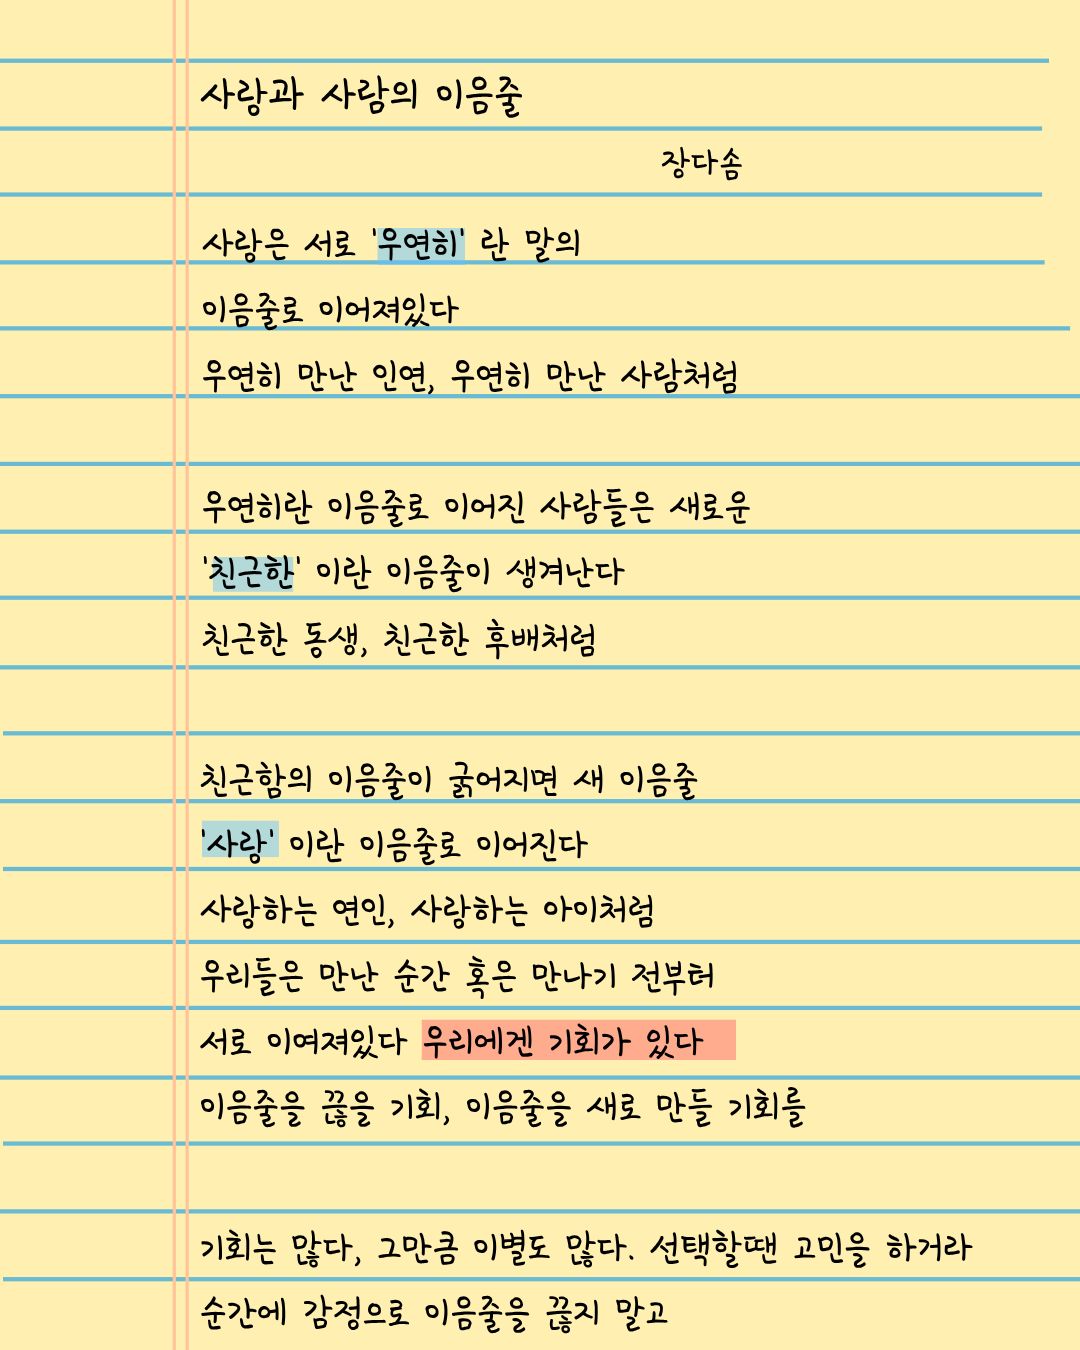 사랑과 사람의 이음줄
장다솜
사랑은 서로 '우연히' 란 말의
이음줄로 이어져있다
우연히 만난 인연, 우연히 만난 사람처럼
우연히란 이음줄로 이어진 사람들은 새로운
'친근한' 이란 이음줄이 생겨난다
친근한 동생, 친근한 후배처럼
친근함의 이음줄이 굵어지면 새 이음줄
'사랑' 이란 이음줄로 이어진다
사랑하는 연인, 사랑하는 아이처럼
우리들은 만난 순간 혹은 만나기 전부터
서로 이여져있다 우리에겐 기회가 있다
이음줄을 끊을 기회, 이음줄을 새로 만들 기회를
기회는 많다, 그만큼 이별도 많다. 선택할땐 고민을 하거라
순간에 감정으로 이음줄을 끊지 말고